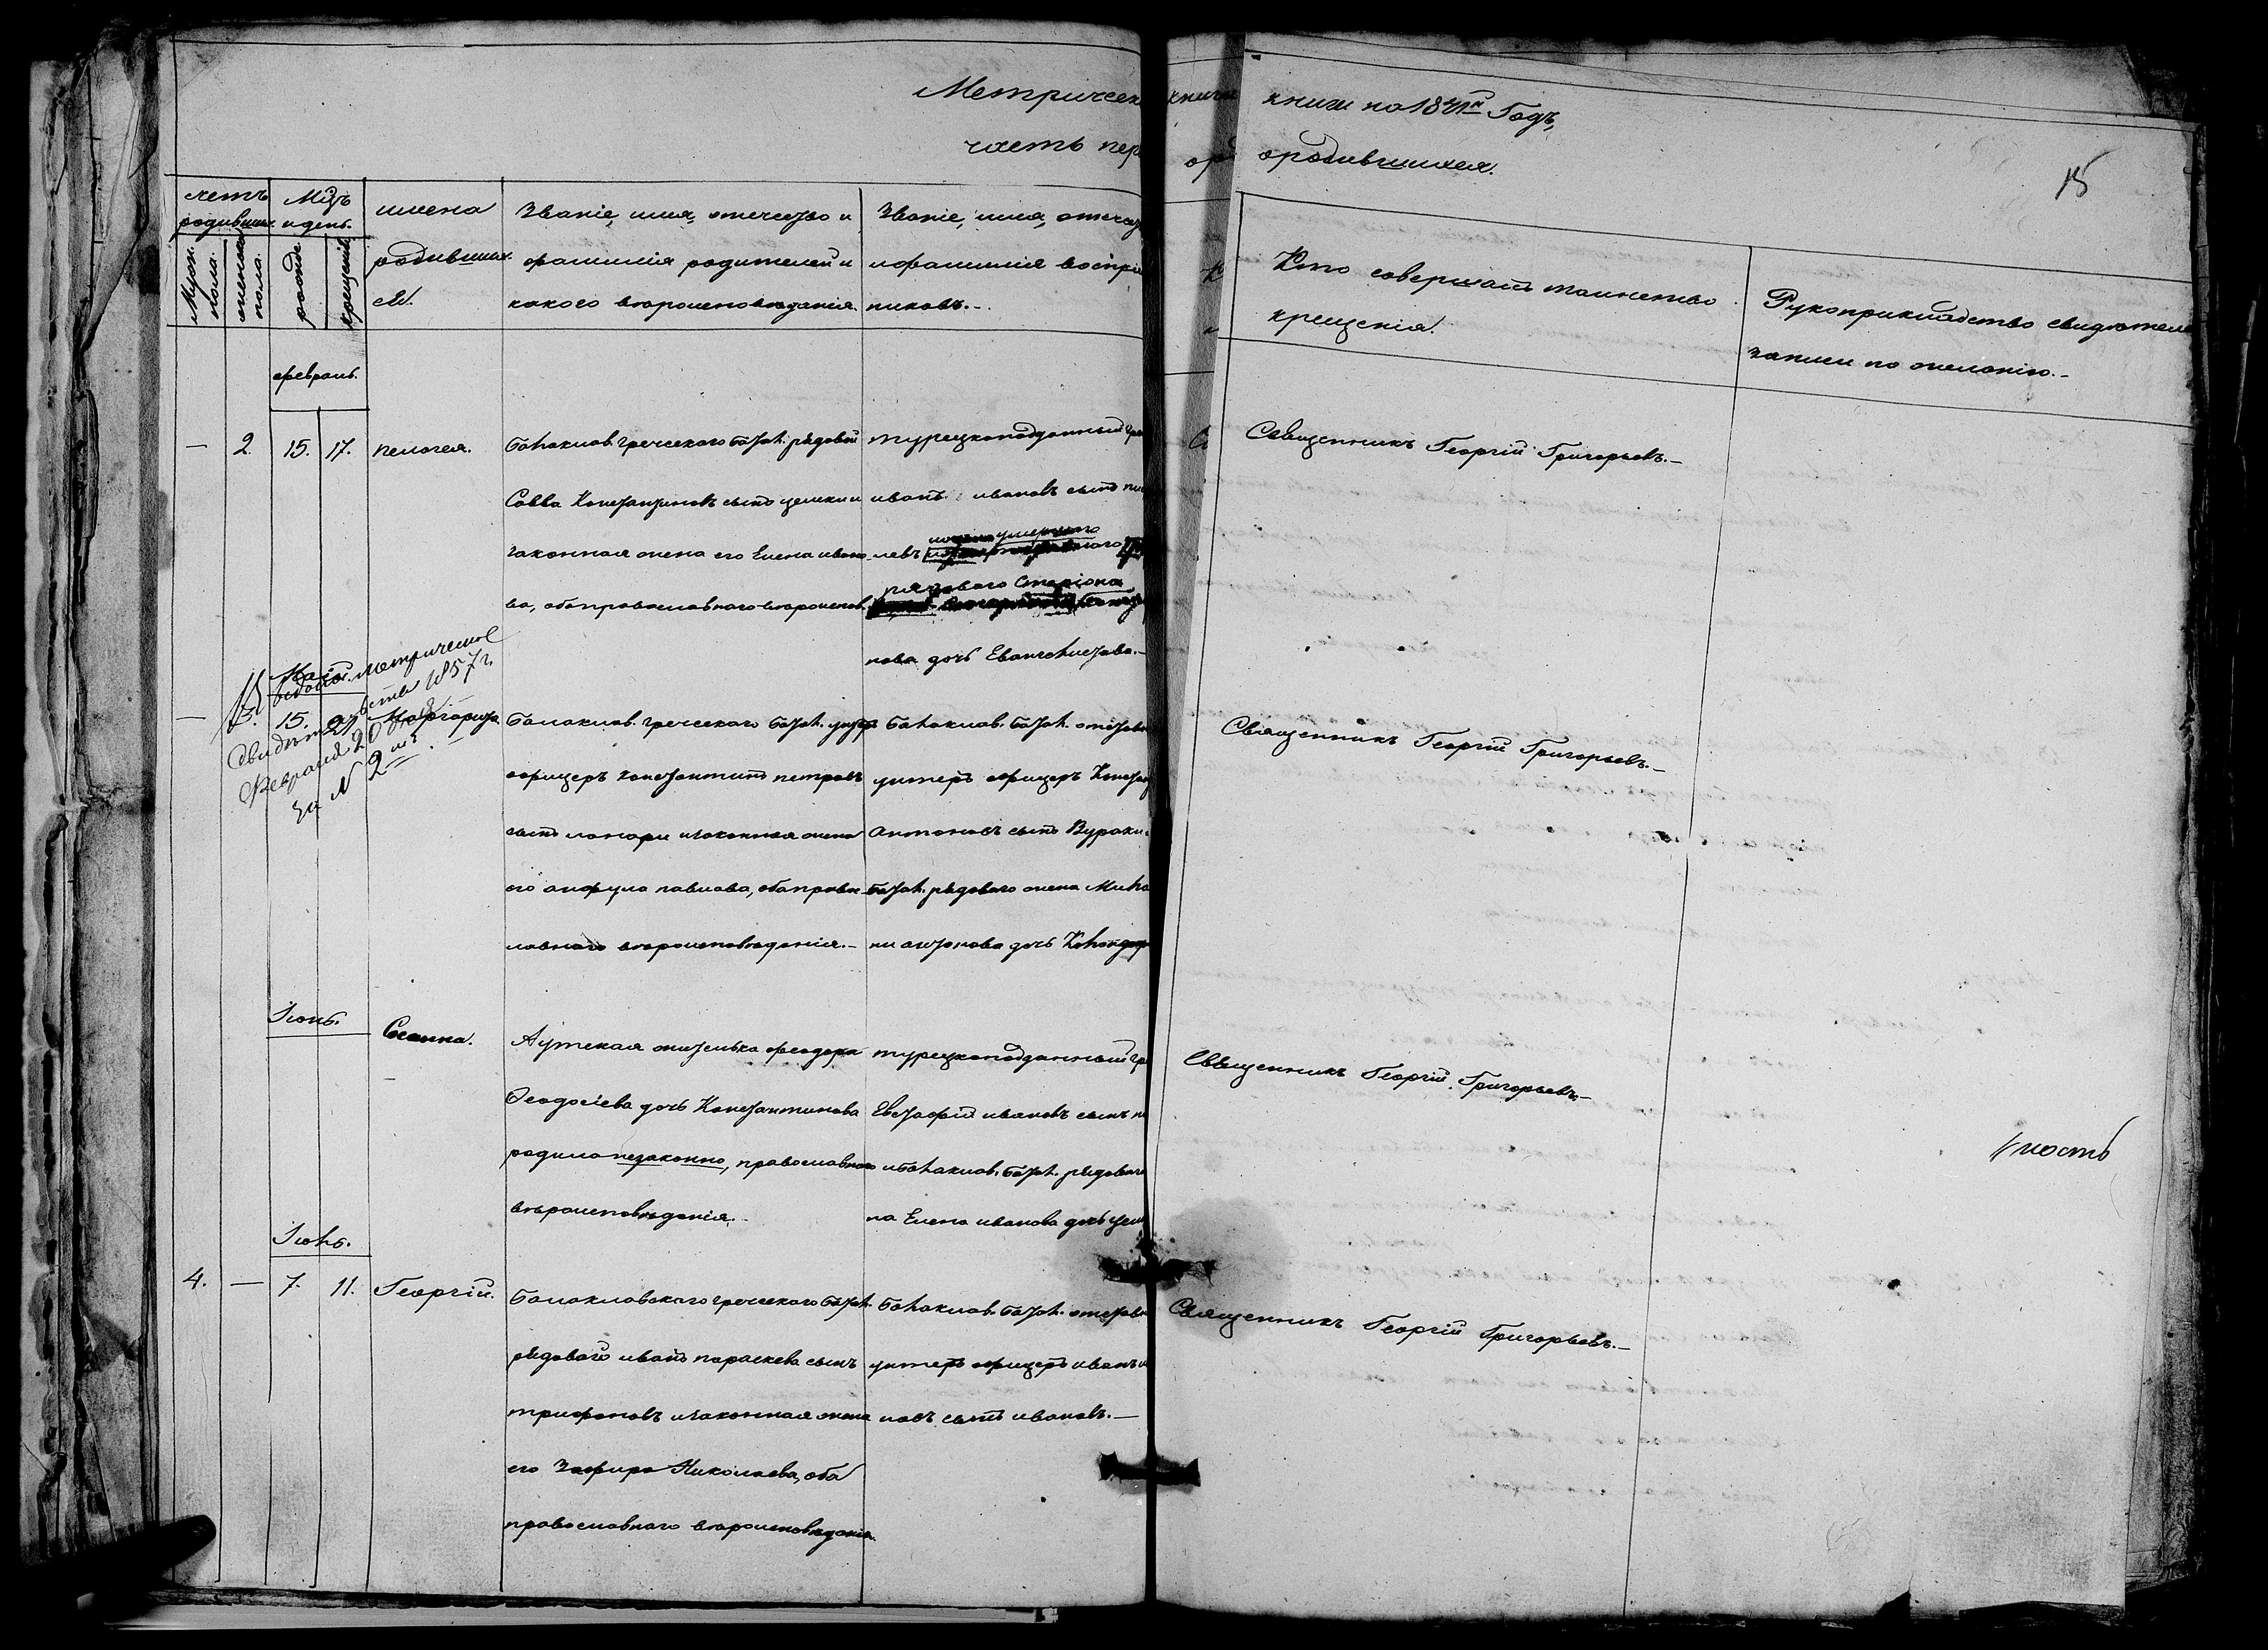 Метрическ
книги на 1841й Годъ,
часть пер
о родившихся.
15
счетъ родивших.
Мцъ и день.
имена родивших ся.
Званіе, имя, отечество и
фамилія родителей и
какого вѣроисповѣданія.
Званіе, имя, отечес
и фамилія воспріе
никовъ.-
Кто совершалъ таинство
крещенія.
Рукоприкладство свидѣтеле
записи по желанію.-
Мужск. пола.
женска пола.
рожде
крещенія
февраль.
— 2. 15. 17. пелагея.
балаклав. греческаго батал. рядовой
Савва Константиновъ сынъ
законная жена его Елена ивано
ва, оба православнаго вѣроиспов.
турецкоподданный гре
иванъ ивановъ сынъ
левъ умершаго
рядового Стеріона
нова дочь Евангелистава.-
Священникъ Георгій Григорьевъ.-
Май.
— 3. 15. 21. Маргарита.
Метрическое
свидѣт
Февраля 20 1857 г.
за N 2м
Балаклав. греческаго батал. унтер
офицеръ константинъ петровъ
сынъ и законная жена
его анфула павлова, оба правос
лавнаго вѣроисповѣданія.-
балаклав. батал. отставн
унтеръ офицеръ Констан
антоновъ сынъ Вураки
батал. рядового жена
ни антонова дочь
Священникъ Георгій Григорьевъ.-
Іюнь.
Сосанна.
Аутская жителька феодора
Феодосіева дочь Константинова
родила незаконно, православнаго
вѣроисповѣданія.
турецкоподданный гр
Евстафій ивановъ сынъ
и балаклав. батал. рядового
на Елена иванова дочь
Священникъ Георгій Григорьевъ.-
Іюль.
4. — 7. 11. Георгій.
балаклавскаго греческаго батал.
рядового иванъ параскева сынъ
трифоновъ и законная жена
его Зафира Николаева, оба
православнаго вѣроисповѣданія.
балаклав. батал. отставн
унтеръ офицеръ иванъ
новъ сынъ ивановъ.-
Священникъ Георгій Григорьевъ.-